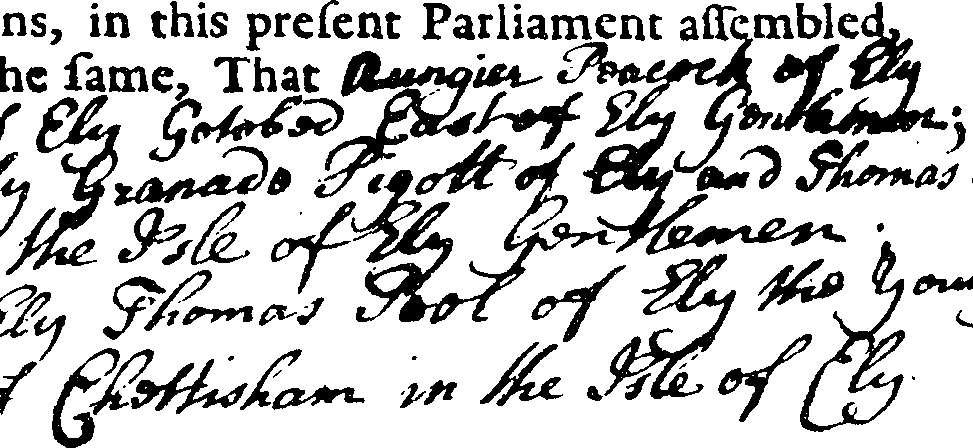 ns, in this preſent Parliament aſſembled,
he ſame, That Rungier Peacock of Ely
f Ely Gotobed East of Ely Gentleman;
ly Granado Pigott of Ely and Thomas
the Isle of Ely Gentlemen.
Ely Thomas Pool of Ely the Youn
f Chettisham in the Isle of Ely